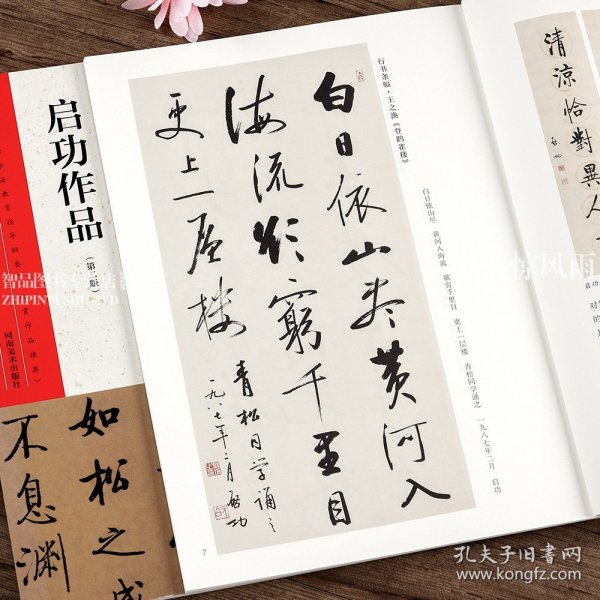 启功作品
（第二版）
法教育指导纲要
赏作品推荐）
河南美术出版社
如松之
不息渊
白日依山尽黄河入
海流欲窮千里目
更上一层楼
青松同学诵之
一九八七年二月启功
行书条幅·王之涣《登鹳雀楼》
白日依山尽 黄河入海流 欲穷千里目 更上一层楼 青松同学诵之 一九八七年二月 启功
7
清涼恰對異人
启功
惊风雨
孔夫子旧书网
www.kongfz.com